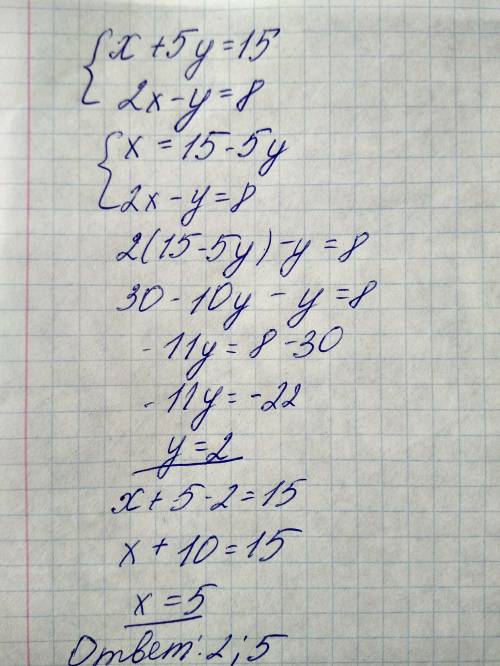 { x + 5y = 15
2x - y = 8
{ x = 15 - 5y
2x - y = 8
2(15 - 5y) - y = 8
30 - 10y - y = 8
- 11y = 8 - 30
- 11y = -22
y = 2
x + 5 · 2 = 15
x + 10 = 15
x = 5
Ответ: 2; 5